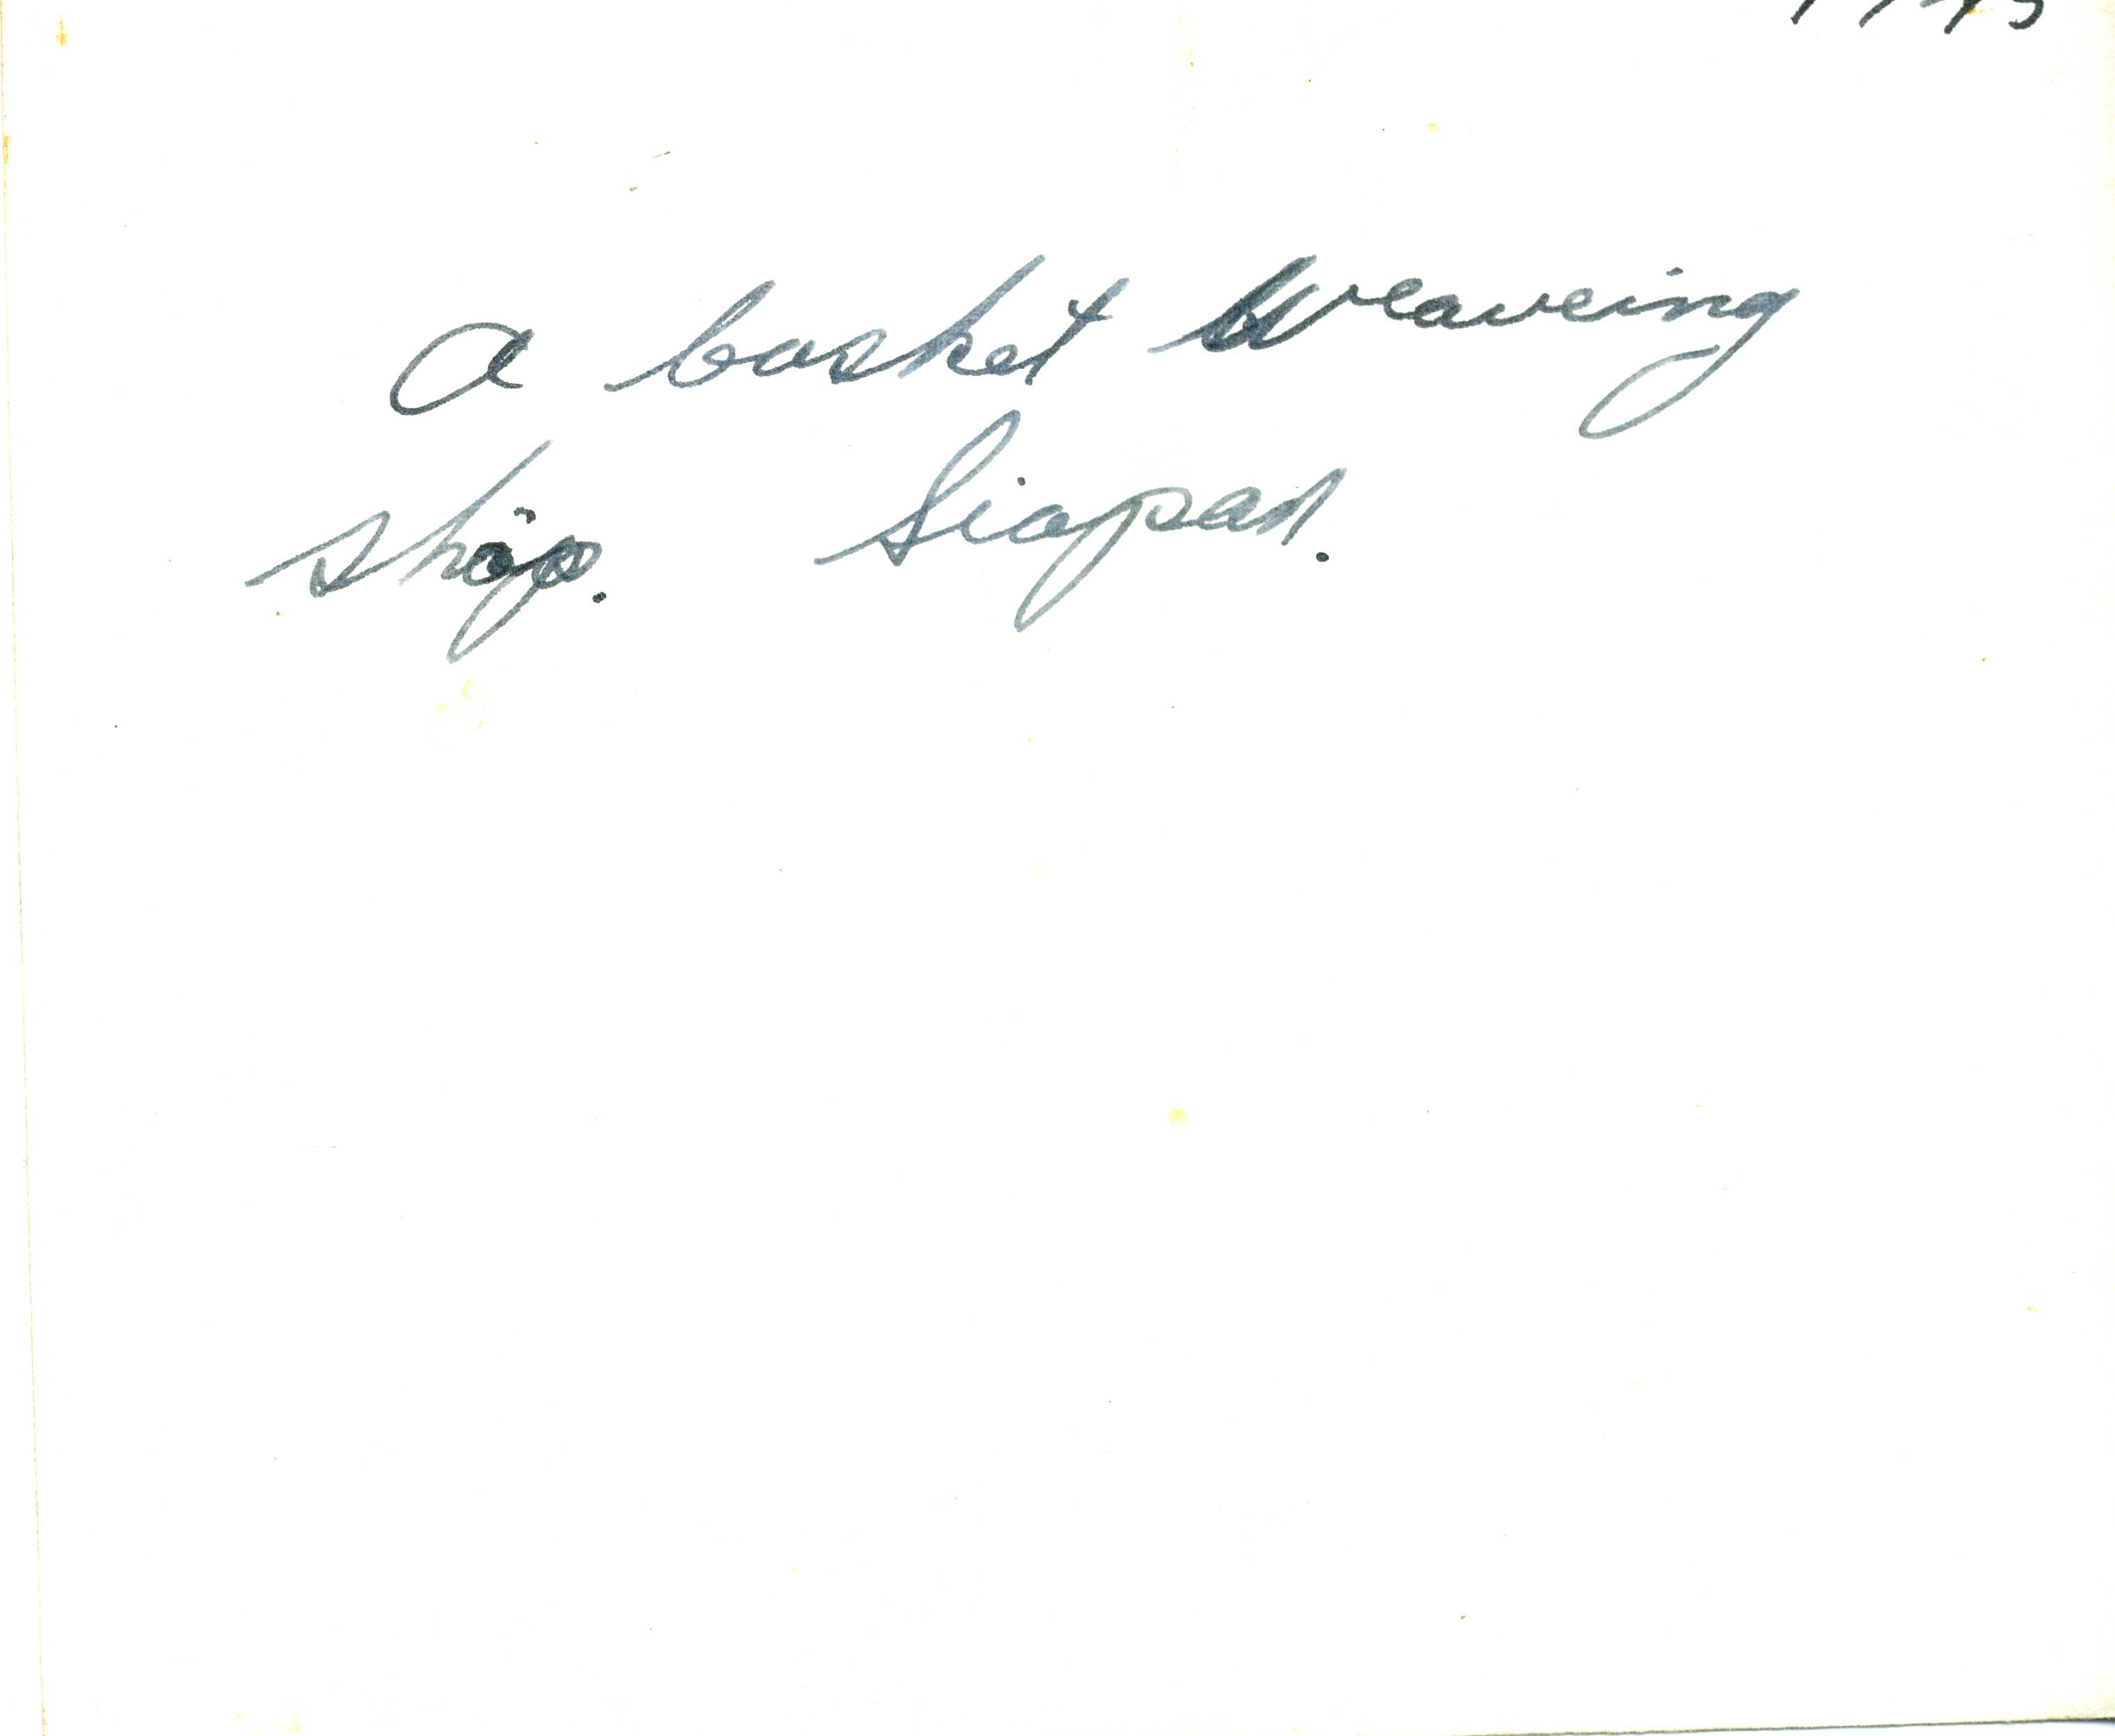 a basket weaveing
ship. Siapan.